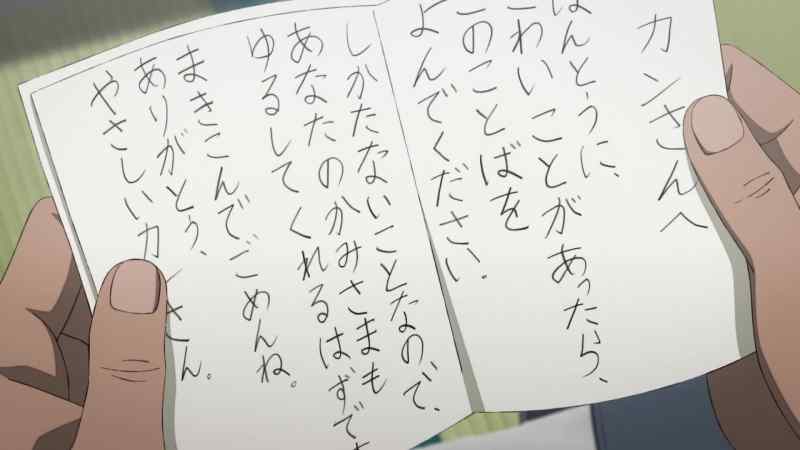 カンさんへ
ほんとうに、
こわいことがあったら、
このことばを
よんでください。
しかたないことなので、
あなたのかみさまも
ゆるしてくれるはずです
まきこんでごめんね。
ありがとう、
やさしいカンさん。